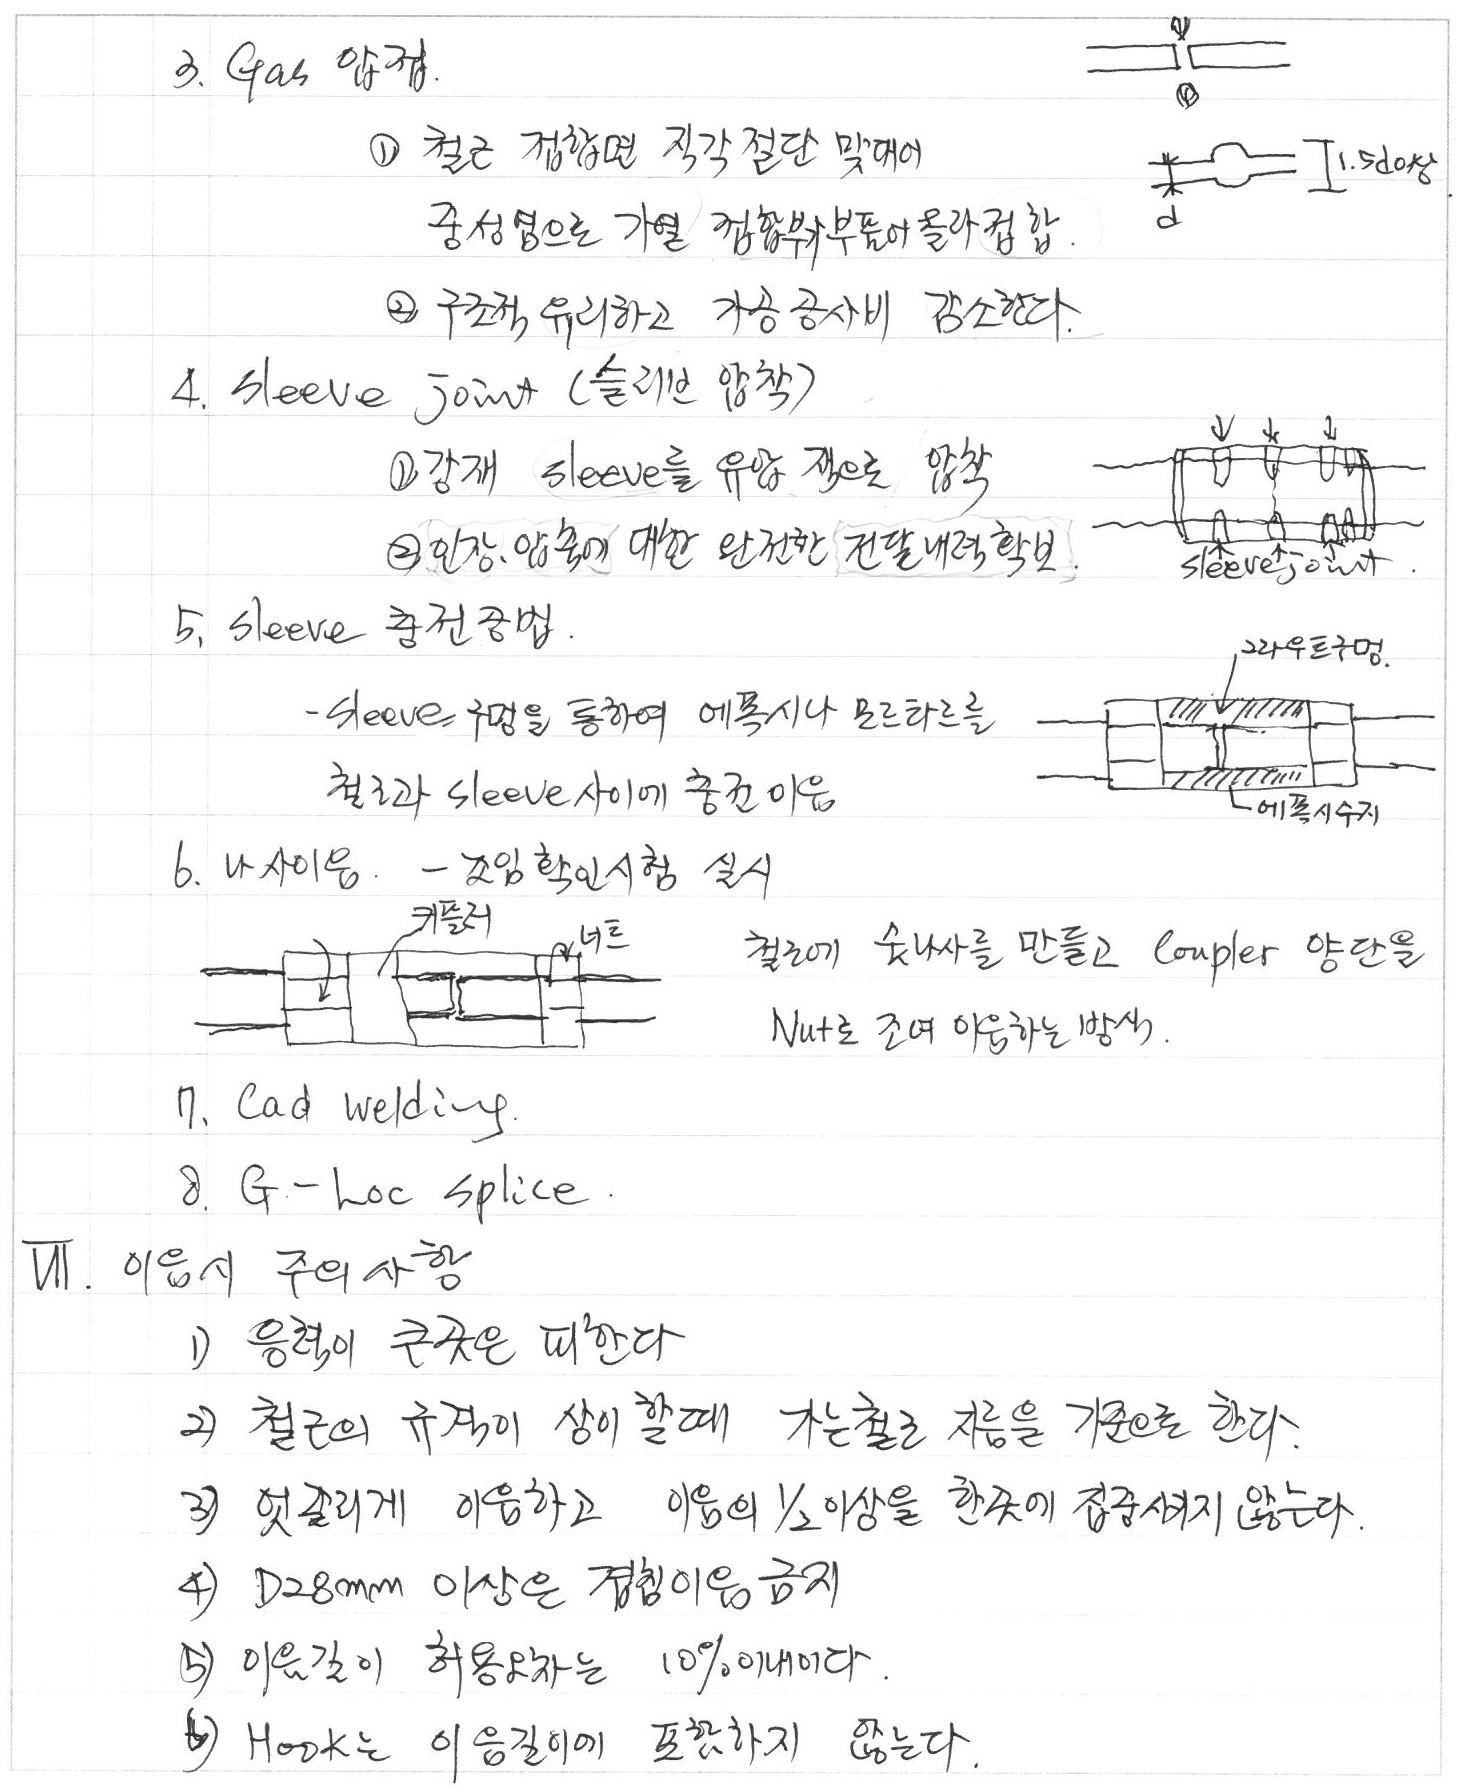 3. Gas 압접.
① 철근 접합면 직각절단 맞대어
중성염으로 가열 접합부가 부풀어 올라 접합.
② 구조적 유리하고 가공공사비 감소한다.
1.5d이상
d
4. Sleeve joint (슬리브 압착)
① 강재 sleeve를 유압 잭으로 압착
② 인장.압축에 대한 완전한 전달내력확보.
sleeve joint.
5. sleeve 충전공법.
- sleeve 구멍을 통하여 에폭시나 모르타르를
철근과 sleeve 사이에 충전 이음
그라우트구멍.
에폭시수지
6. 나사이음. - 조임확인시험 실시
커플러
너트
철근에 숫나사를 만들고 Coupler 양단을
Nut로 조여 이음하는 방식.
7. Cad welding.
8. G-Loc splice.
Ⅶ. 이음시 주의사항
1) 응력이 큰곳은 피한다
2) 철근의 규격이 상이할때 가는철근 지름을 기준으로 한다.
3) 엇갈리게 이음하고 이음의 1/2이상을 한곳에 집중시키지 않는다.
4) D28mm 이상은 겹침이음 금지
5) 이음길이 허용오차는 10%이내이다.
6) Hook는 이음길이에 포함하지 않는다.